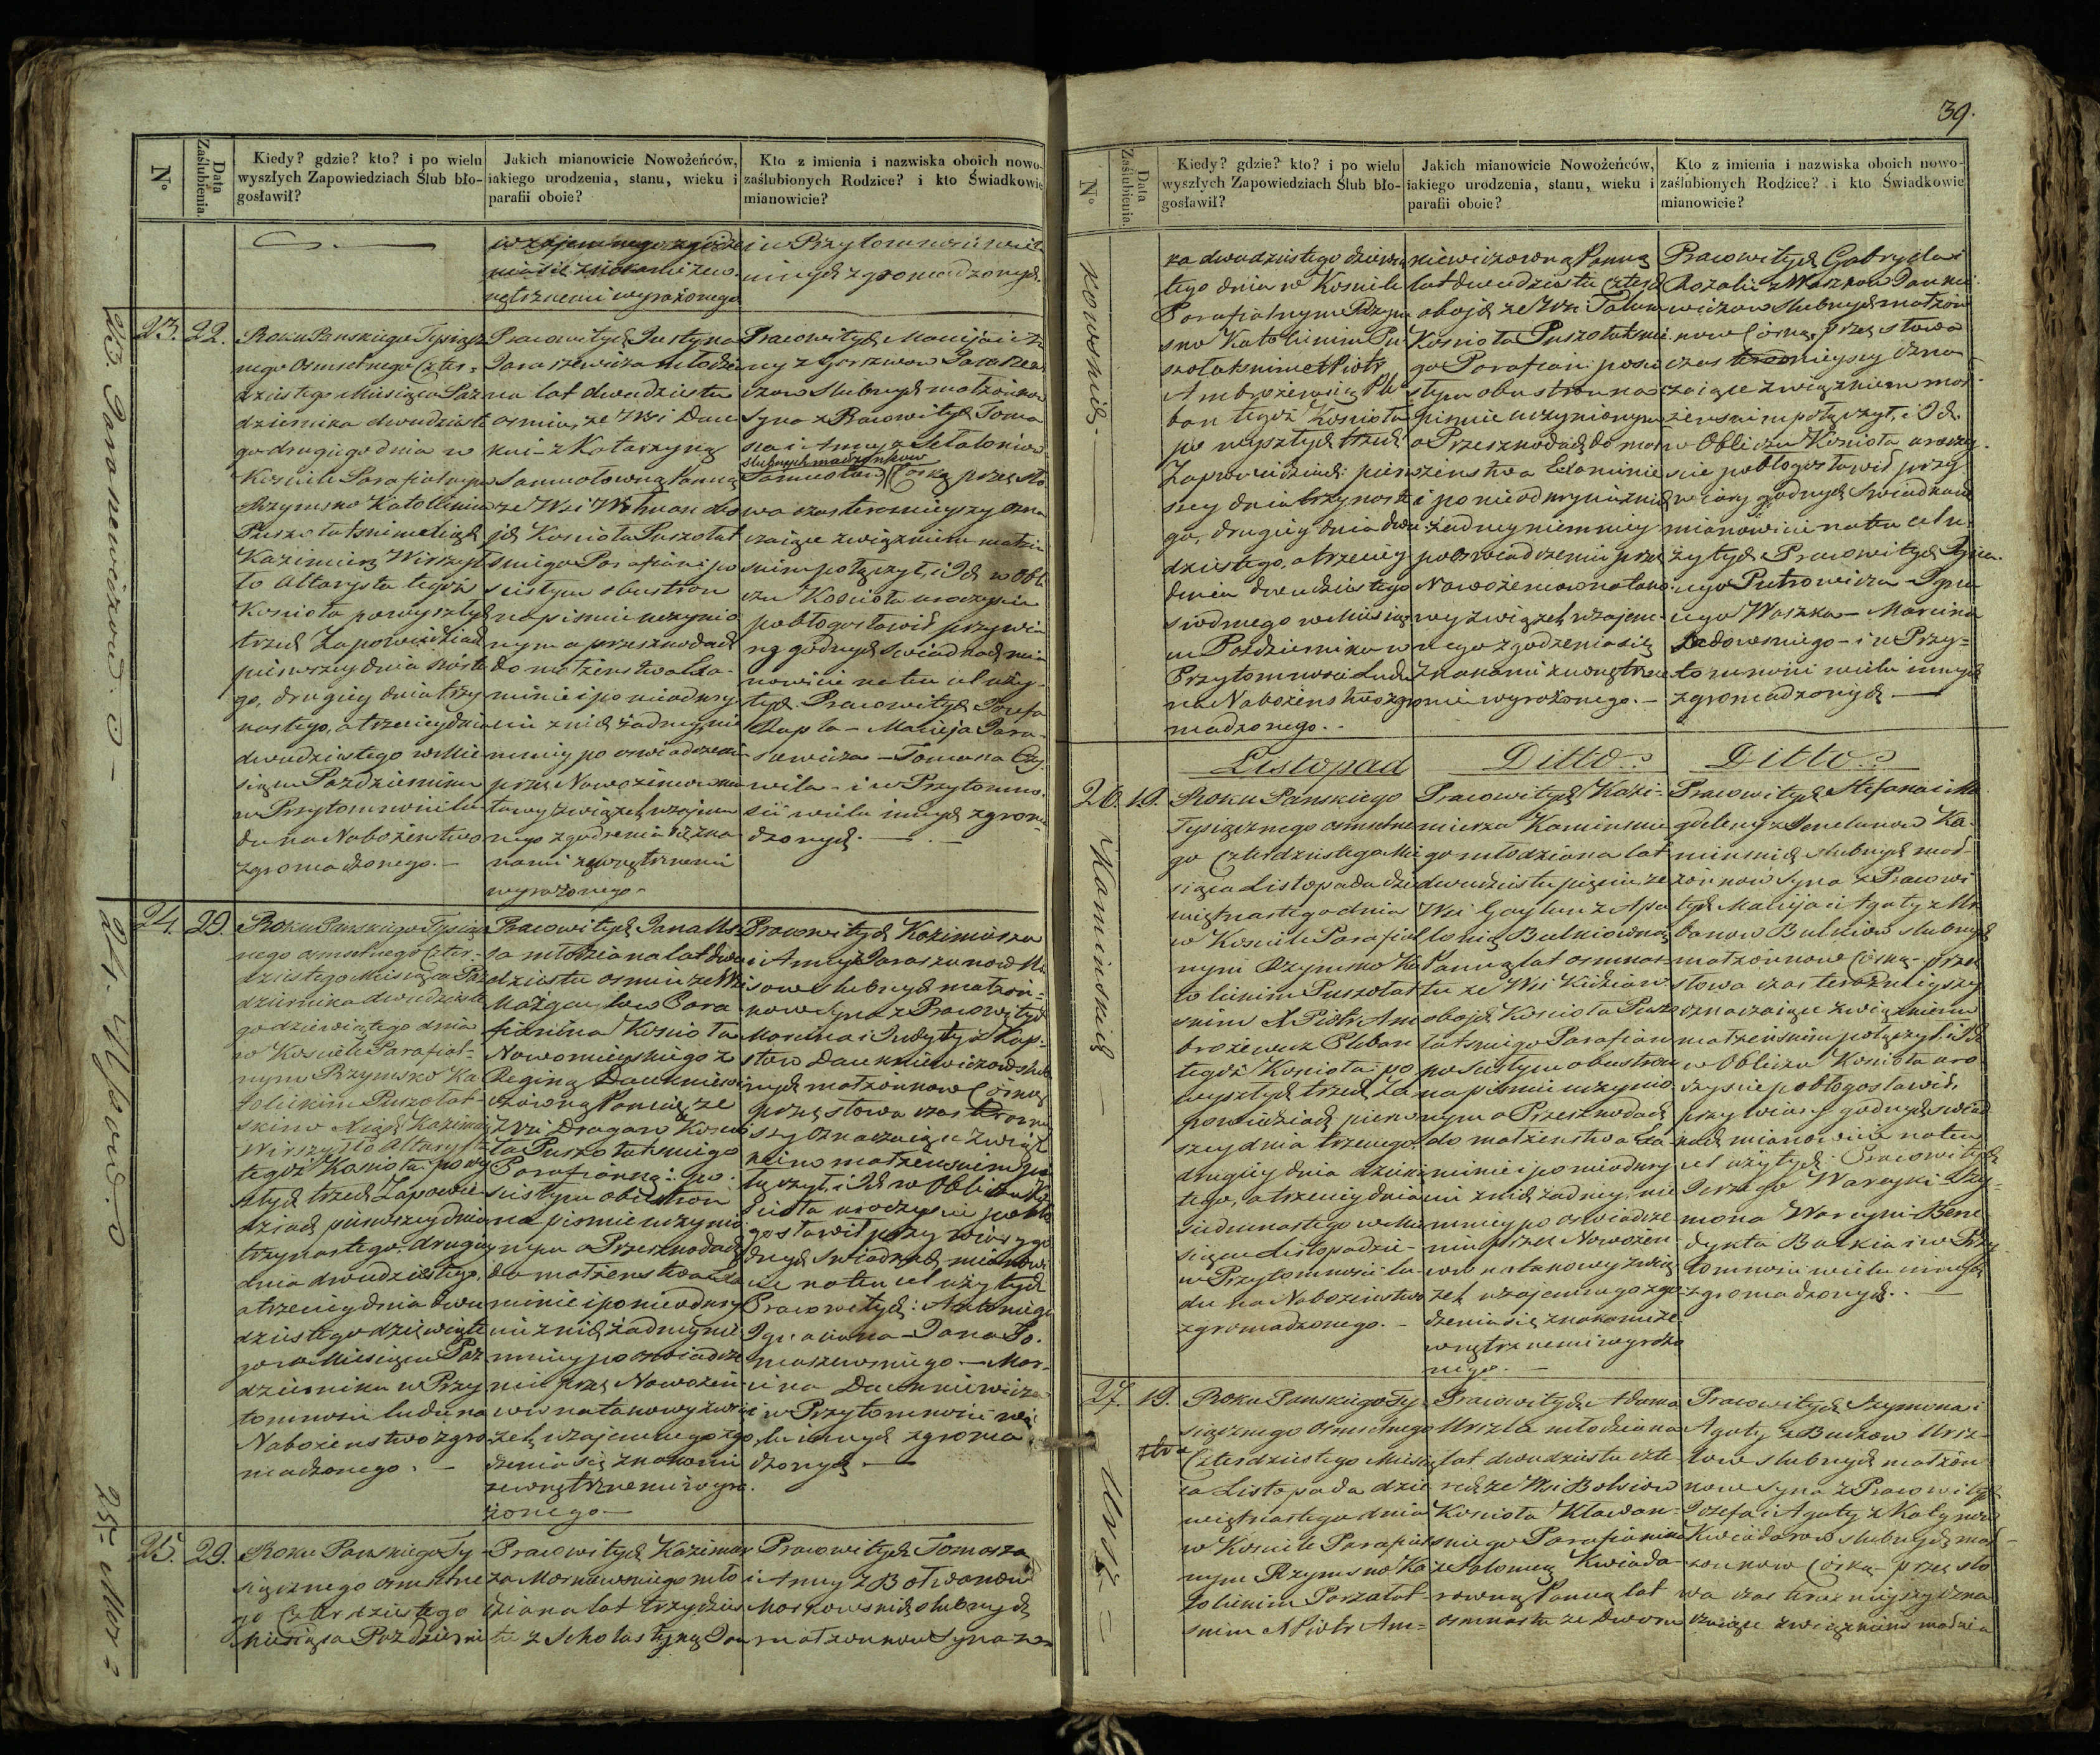 N°
Data Zaślubienia.
Kiedy? gdzie? kto? i po wielu
wyszłych Zapowiedziach Ślub bło-
gosławił?
Jakich mianowicie Nowożeńców,
iakiego urodzenia, stanu, wieku i
parafii oboie?
Kto z imienia i nazwiska oboich nowo-
zaślubionych Rodzice? i kto Świadkowie
mianowicie?
nętrznemi wyrażonego
i w Przytomności wielu
innych zgromadzonych.
23.
22.
Roku Pańskiego Tysiącz
nego Osmsetnego Czter-
dziestego Miesiąca Paź
dziernika dwudzieste
go drugiego dnia w
Kościele Parafialnym
Rzymsko Katolickim
Puszołatskim Xiądz
Kazimierz Wirszyłło
Altarysta tegoż
Kościoła po wyszłych
trzech Zapowiedziach
pierwszey dnia szóste
go, drugiey dnia trzy
nastego, a trzeciey dnia
dwudziestego w Mie
siącu Październiku
w Przytomności lu
du na Nabożeństwo
zgromadzonego.
Pracowitych Justyna
Paraszewicza młodzie
na lat dwudziestu
osmiu, ze Wsi Dau
kni - z Katarzyną
Samuołowną Panną
jch Kościoła Puszołat
skiego Parafian: po
ścisłym obustron
na piśmie uczynio
nym a przeszkodach
do małżeństwa Exa-
minie i po nieodkry
ciu z nich żadney nie
mniey po oświadczeniu
przez Nowożeńców na
takowy związek wzajem
nego zgodzenia się zna
kami zewnętrznemi
wyrażonego.
Pracowitych Macieja i
Slubnych małżonkow
Syna z Pracowitych Toma
sza i Anny z
Slubnych małżonkow
Samuołow Córką przez sło
wa czas teraznieyszy ozna
czaiące związkiem małżeń
skim połączył, i Ich w Obli
czu Kościoła uroczyście
pobłogosławił przy wia
ry godnych Swiadkach mia
nowicie na ten cel uży
tych. Pracowitych Jozefa
Macieja Para
sewicza - Tomasza
wiła - i w Przytomno
ści wielu innych zgroma
dzonych.
24.
29.
Roku Pańskiego Tysiącz
nego osmsetnego Czter-
dziestego Miesiąca Paź
dziernika dwudzieste
go dziewiątego dnia
w Kościele Parafial-
nym Rzymsko Ka
tolickim Puszołat-
skim Xiądz Kazimierz
Wirszyłło Altarysta
tegoż Kościoła po wy
szłych trzech Zapowie
dziach pierwszey dnia
trzynastego, drugiey
dnia dwudziestego,
a trzeciey dnia dwu
dziestego dziewiąte
go w Miesiącu Paź
dzierniku w Przy
tomności ludu na
Nabożeństwo zgro
madzonego.
Pracowitych Jana
sa młodziana lat dwu
dziestu osmiu ze Wsi
Para
fianina Kościoła
Nowomieyskiego z
Reginą Daukniewi
czowną Panną ze
Wsi Dragan Koscio
ła Puszołatskiego
Parafianką: po
ścisłym obustron
na piśmie uczynio
nym a Przeszkodach
do małżeństwa Exa
minie i po nieodkry
ciu z nich żadney nie
mniey po oświadcze
niu przez Nowożeń
ców na takowy zwią
zek wzajemnego zgo
dzenia się znakami
zewnętrznemi wyra
żonego
Pracowitych Kazimierza
i Anny z Paraszunow
slubnych małżon-
kow Syna z Pracowitych
Marcina i Judyty z
Daukniewiczow slub
nych małżonkow Córką
przez słowa czas terazniey
szy oznaczaiące związ
kiem małżeńskim po
łączył, i Ich w Obliczu Ko
ścioła uroczyście pobło
gosławił przy wiary go
dnych Swiadkach mianowi
cie na ten cel użytych
Pracowitych: Antoniego
Jana To
maszewskiego - Mar
cina Daukniewicza
i w Przytomności wie
lu innych zgroma
dzonych
25.
29.
Roku Pańskiego Ty
siącznego osmsetne
go Czterdziestego
Miesiąca Październi
Pracowitych Kazimier
za Markowskiego mło
dziana lat trzydzies
tu z Scholastyką Dau
Pracowitych Tomasza
i Anny z Botwanow
Markowskich slubnych
małżonkow Syna z
23. Paraszewiczow.
39.
N°
Data Zaślubienia.
Kiedy? gdzie? kto? i po wielu
wyszłych Zapowiedziach Ślub bło-
gosławił?
Jakich mianowicie Nowożeńców,
iakiego urodzenia, stanu, wieku i
parafii oboie?
Kto z imienia i nazwiska oboich nowo-
zaślubionych Rodzice? i kto Świadkowie
mianowicie?
kowskich.
ka dwudziestego dziewią
tego dnia w Kościele
Parafialnym Rzym
sko Katolickim Pu
szołatskim X Piotr
Ambrożewicz Ple
ban tegoż Kościoła
po wyszłych trzech
Zapowiedziach: pierw
szey dnia trzynaste
go, drugiey dnia dwu
dziestego, a trzeciey
dnia dwudziestego
siodmego w Miesią
cu Październiku w
Przytomności Ludu
na Nabożeństwo zgro
madzonego.
kniewiczowną Panną
lat dwudziestu czterech
obojch ze Wsi
Kościoła Puszołatskie
go Parafian: po sci
słym obustron na
piśmie uczynionym
a Przeszkodach do mał
żeństwa Examinie
i po nieodkryciu z nich
żadney niemniey
po oświadczeniu przez
Nowożeńców na tako
wy związek wzajem
nego zgodzenia się
znakami zewnętrzne
mi wyrażonego.
Pracowitych Gabryela i
Rozalii z Waszkow Daukni
wiczow slubnych małżon
kow Córką, przez słowa
czas teraznieyszy ozna
czaiące związkiem mał
żeńskim połączył, i Ich
w Obliczu Kościoła uroczy
ście pobłogosławił przy
wiary godnych Swiadkach
mianowicie na ten cel u
żytych Pracowitych
Piotrowicza
Waszka - Marcina
Sadowskiego - i w Przy=
tomności wielu innych
zgromadzonych
Listopad
Ditto
Ditto
26.
19.
Kaminskich
Roku Pańskiego
Tysiącznego osmsetne
go Czterdziestego Mie
siąca Listopada dzie
więtnastego dnia
w Kościele Parafial
nym Rzymsko Ka
tolickim Puszołat
skim X Piotr Am
brożewicz Pleban
tegoż Kościoła: po
wyszłych trzech Za
powiedziach pierw
szey dnia trzeciego,
drugiey dnia dziesią
tego, a trzeciey dnia
siedmnastego w Mie
siącu Listopadzie
w Przytomności lu-
du na Nabożeństwo
zgromadzonego.
Pracowitych Kazi-
mierza Kaminskie
go młodziana lat
dwudziestu pięciu ze
Wsi Gaylun z Apo
lonią Bulkiowną
Panną lat osmnas-
tu ze Wsi Kidzian
obojch Kościoła Puszo
łatskiego Parafian
po ścisłym obustron
na piśmie uczynio
nym a Przeszkodach
do małżeństwa Exa
minie i po nieodkry
ciu z nich żadney, nie
mniey po oświadcze
niu przez Nowożeń
ców na takowy zwią
zek wzajemnego zgo
dzenia się znakami ze
wnętrznemi wyrażo
nego.
Pracowitych Stefana i Ma
gdaleny z Ka
minskich slubnych mał-
żonkow Syna z Pracowi
tych Macieja i Agaty z
Bulkiow slubnych
małżonkow Córką - przez
słowa czas teraznieyszy
oznaczaiące związkiem
małżeńskim połączył, i Ich
w Obliczu Kościoła uro
czyście pobłogosławił,
przy wiary godnych świad
kach mianowicie na ten
cel użytych: Pracowitych
Jerzego Wareyki Szy-
mona Wareyki Bene
dykta Bulkia i w Przy
tomności wielu innych
zgromadzonych.
27.
19.
Roku Pańskiego Ty
siącznego Osmsetnego
Czterdziestego Miesią
ca Listopada dzie
więtnastego dnia
w Kościele Parafial
nym Rzymsko Ka
tolickim Puszołat-
skim X Piotr Am=
Pracowitych Adama
Urszla młodziana
lat dwudziestu czte
rech ze Wsi
Kościoła Kławan-
skiego Parafianina
z Salomeą Kwiada-
rowną Panną lat
osmnastu ze Dworu
Pracowitych Szymona i
Agaty z Ursz-
low slubnych małżon
kow Syna z Pracowitych
Jozefa i Agaty z
Kwiadarow slubnych mał
żonkow Córką - przez sło
wa czas teraznieyszy ozna
czaiące związkiem małżeń